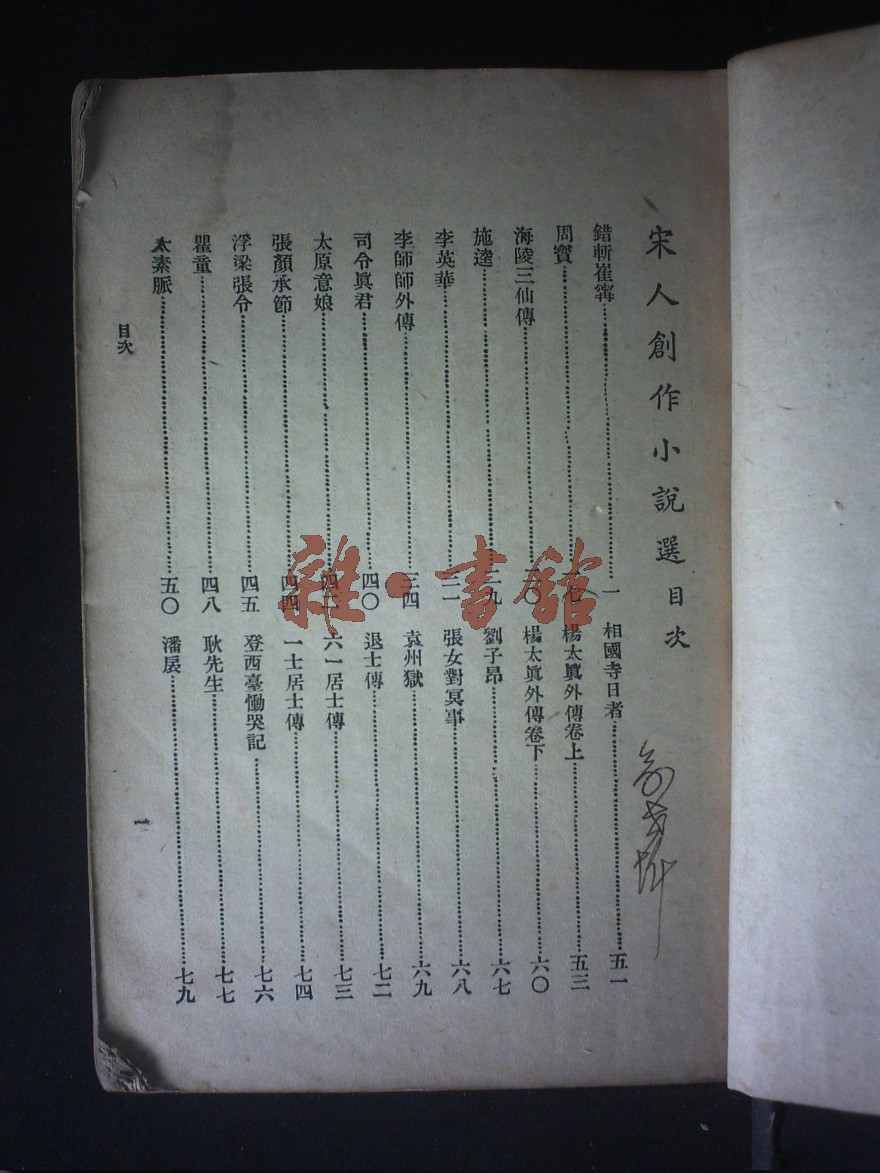 宋人創作小說選目次
錯斬崔寧 一
周寶
海陵三仙傳
施逵 二九
李英華
李師師外傳 三四
司令眞君 四〇
太原意娘 四二
張顏承節 四四
浮梁張令 四五
瞿童 四八
太素脈 五〇
相國寺日者 五一
楊太眞外傳卷上 五三
楊太眞外傳卷下 六〇
劉子昂 六七
張女對冥事 六八
袁州獄 六九
退士傳 七二
六一居士傳 七三
一士居士傳 七四
登西臺慟哭記 七六
耿先生 七七
潘扆 七九
目次
一
雜·書館